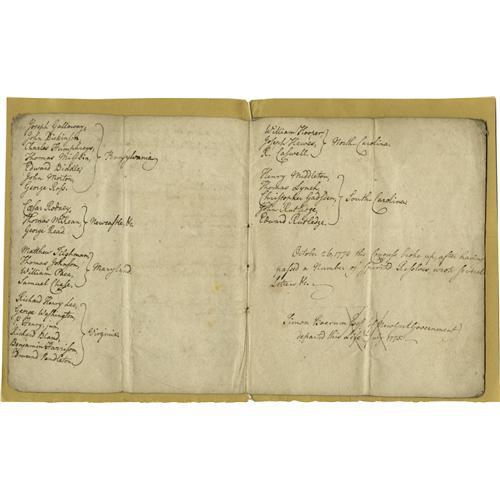 Joseph Galloway,
John Dickinson
Charles Humphreys,
Thomas Mifflin,
Pennsylvania
Edward Biddle,
John Morton,
George Ross,
Cæsar Rodney,
Thomas McKean,
Newcastle &c
George Read
Matthew Tilghman,
Thomas Johnson,
Maryland
William Paca,
Samuel Chase,
Richard Henry Lee,
George Washington,
P. Henry, jun
Virginia
Richard Bland,
Benjamin Harrison,
Edmund Pendleton,
William Hooper
Joseph Hewes,
North Carolina
R. Caswell
Henry Middleton,
Thomas Lynch
Christopher Gadsden
South Carolina
John Rutledge,
Edward Rutledge.
October 26, 1774 the Congress broke up, after having
passed a Number of Resolves, wrote several
Letters &c
Simon Boerum Government
departed this Life July 1775